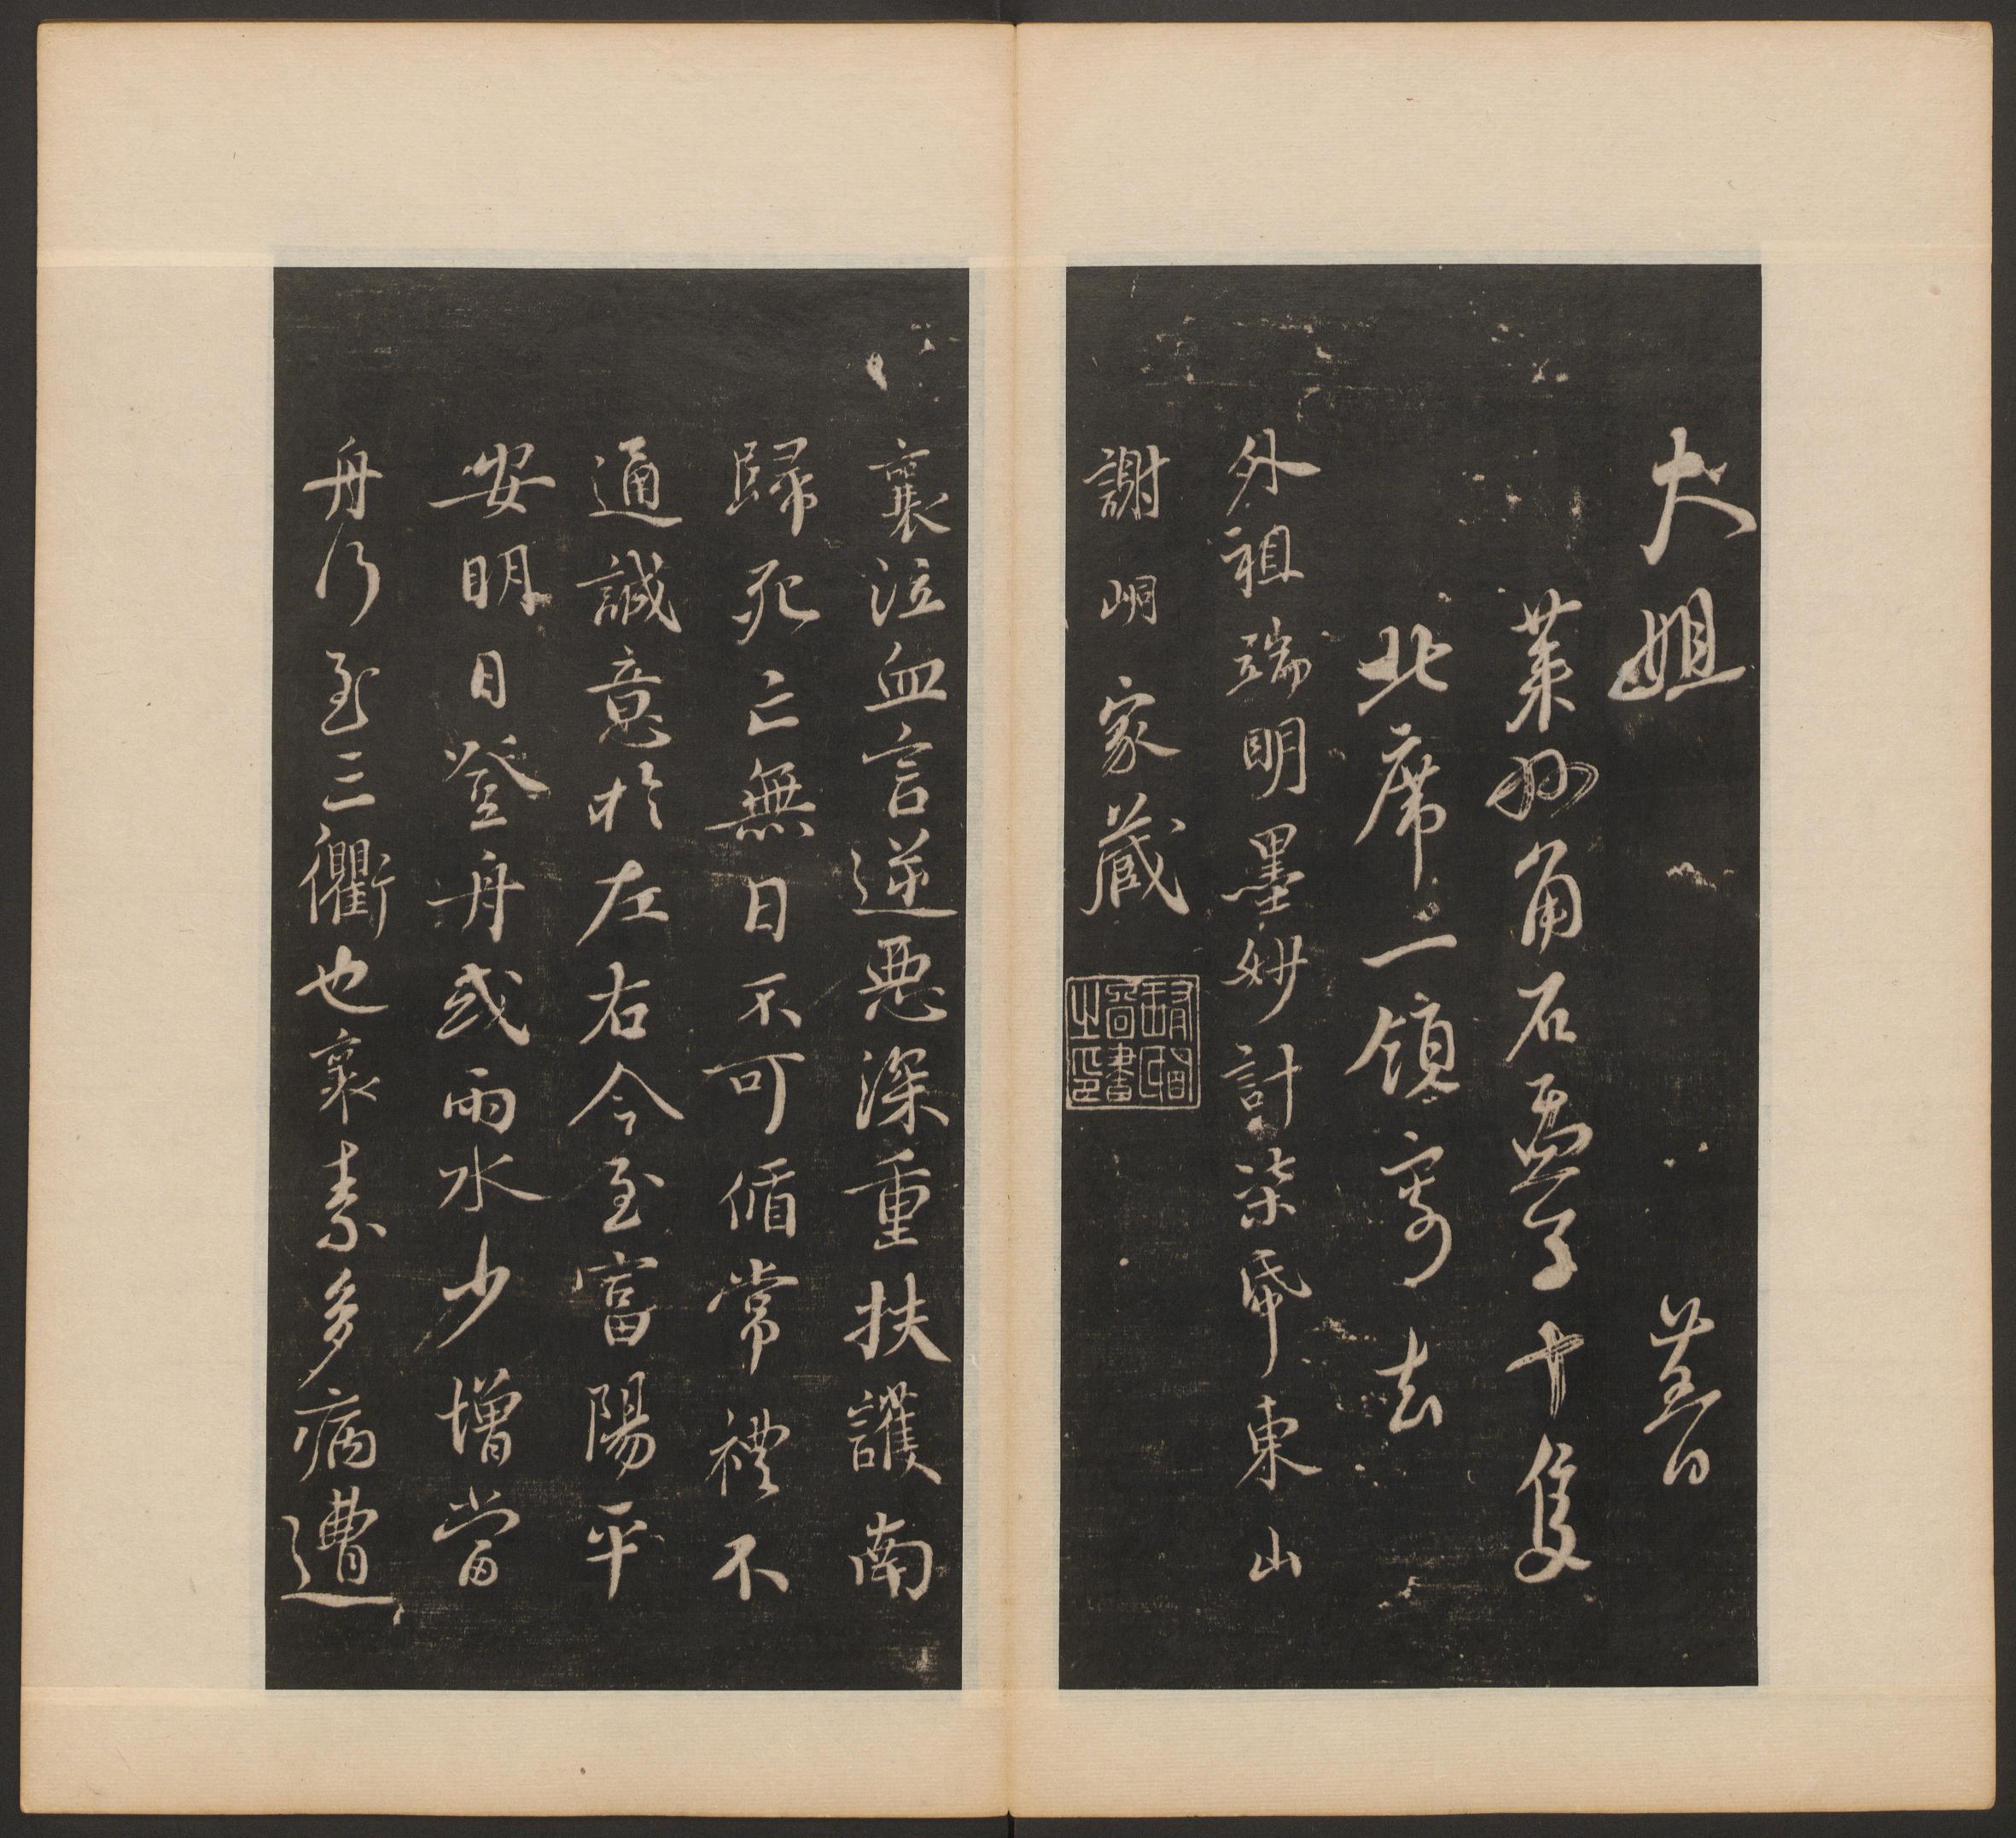 大姐
萊州角石 子十隻
北席一領寄去
外祖端明墨妙計柒帋東山
謝峒家藏
襄泣血言逆惡深重扶護南
歸死亡無日不可循常禮不
通誠意於左右今至富陽平
安明日登舟或雨水少增當
舟行至三衢也襄素多病遭